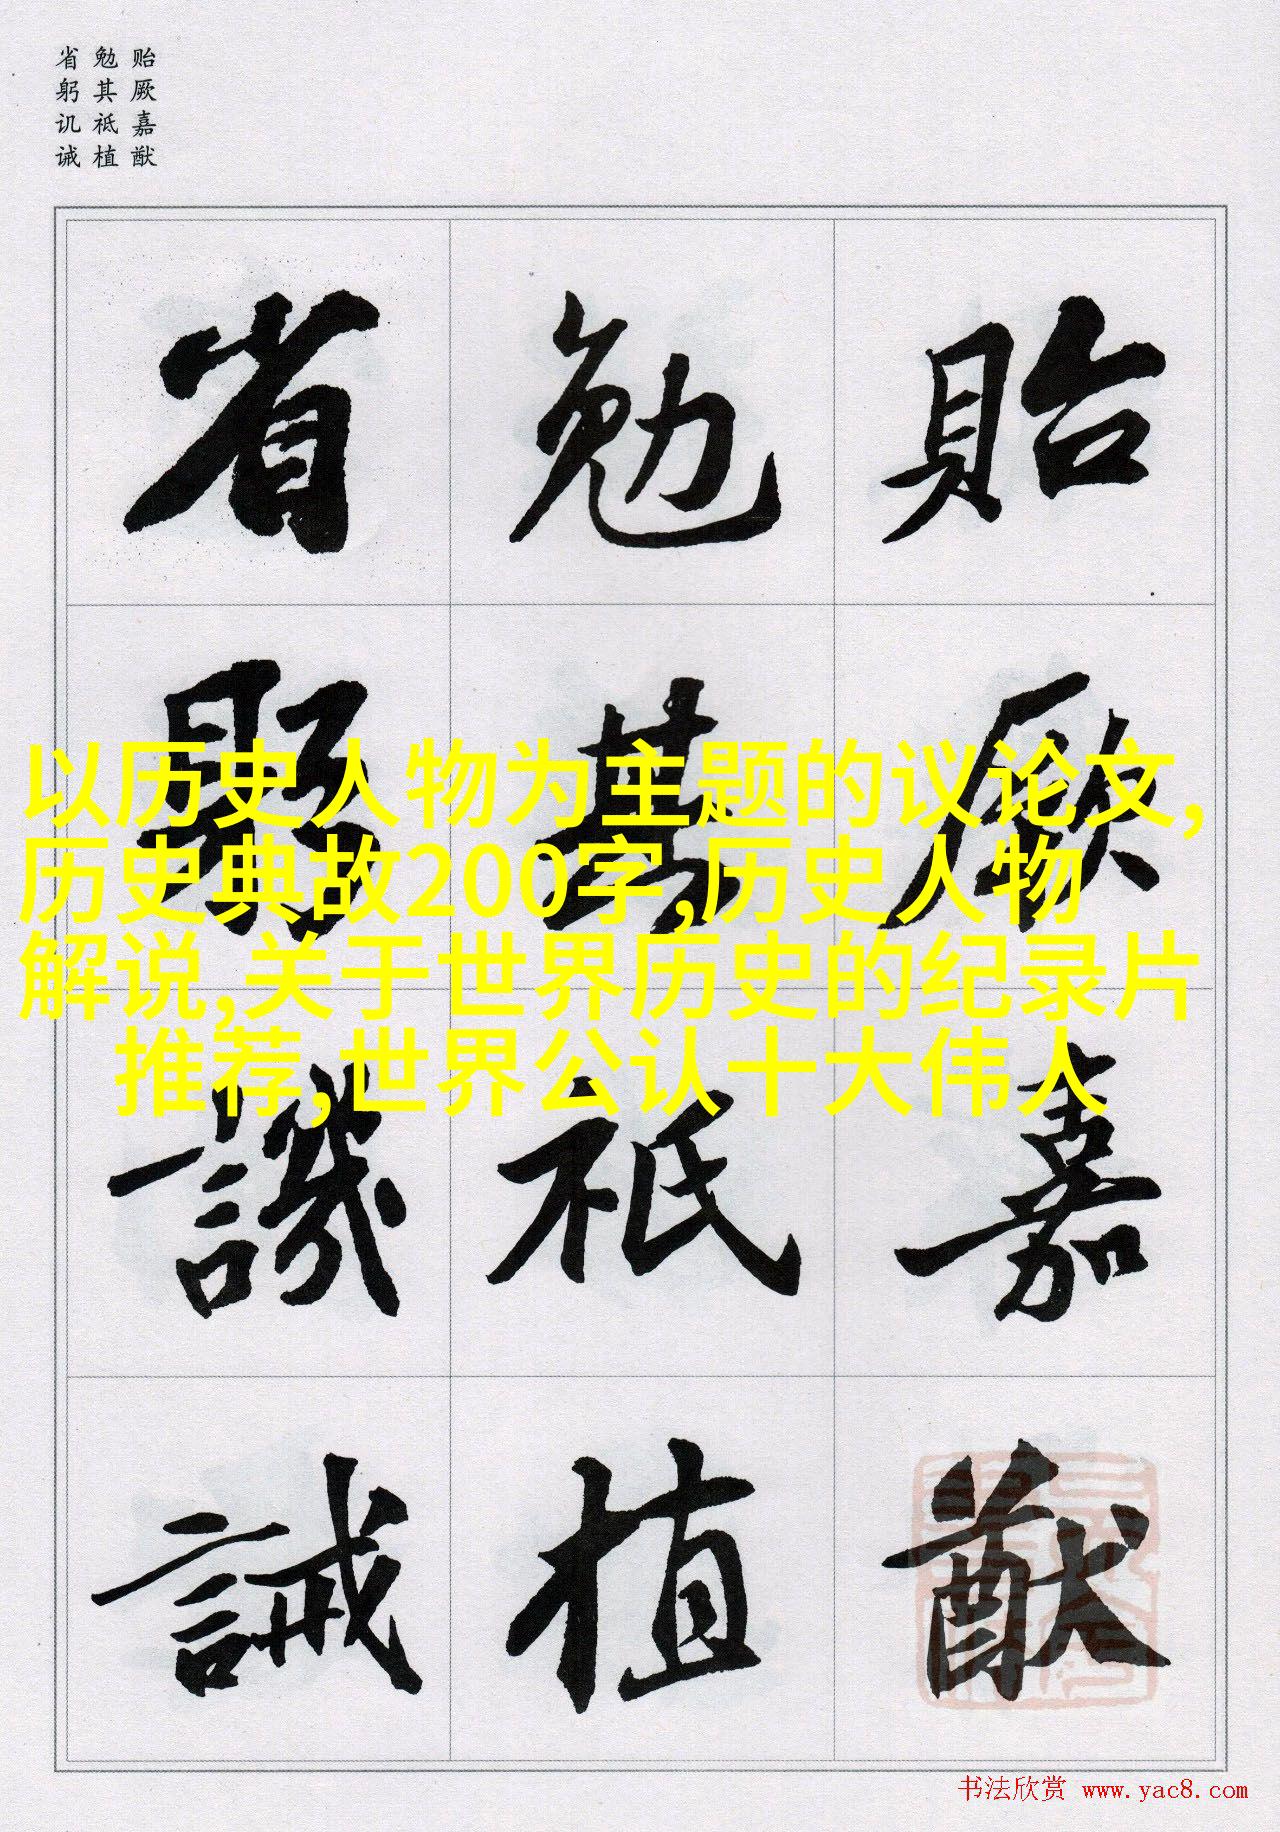 贻厥嘉猷
勉其祗植
省躬讥诫
貽厥嘉猷
勉其祗植
省躬譏誡
以历史人物为主题的议论文,
历史典故200字,历史人物
解说,关于世界历史的纪录片
推荐,世界公认十大伟人
书法欣赏 www.yac8.com